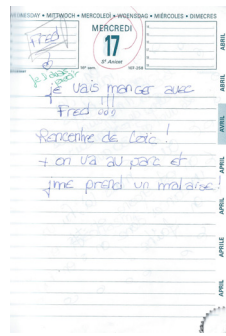 WEDNESDAY • MITTWOCH • MERCOLEDÌ • WOENSDAG • MIÉRCOLES • DIMECRES
MERCREDI
17
Sᵗ Anicet
16ᵉ sem. 107-259
Fred
je vais manger avec
Fred
Rencontre de Loïc !
+ on va au parc et
jme prend un malaise !
ABRIL
ABRIL
AVRIL
APRIL
APRIL
APRILE
APRIL